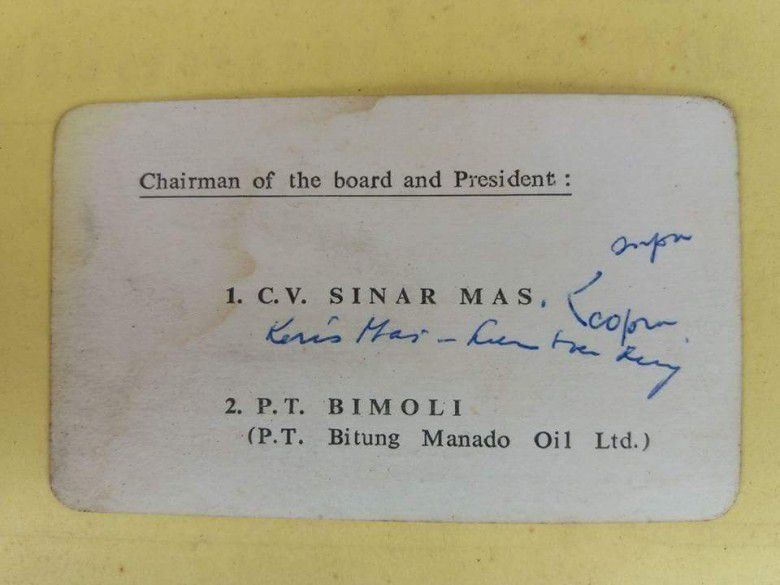 Chairman of the board and President :
1. C.V. SINAR MAS.
copra
Keris Mas –
2. P.T. BIMOLI
(P.T. Bitung Manado Oil Ltd.)